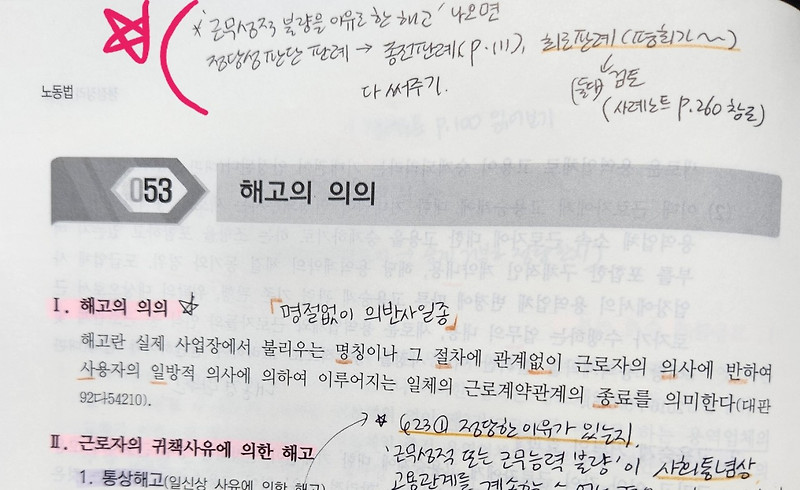 * '근무성적 불량을 이유로 한 해고' 나오면
정당성판단 판례 → 종전판례(p.111), 최근판례(평회가~)
다 써주기.
(둘다) 검토
(사례노트 p.260 참고)
노동법
053 해고의 의의
Ⅰ. 해고의 의의 ☆ 「명절없이 의반사일종」
해고란 실제 사업장에서 불리우는 명칭이나 그 절차에 관계없이 근로자의 의사에 반하여
사용자의 일방적 의사에 의하여 이루어지는 일체의 근로계약관계의 종료를 의미한다(대판
92다54210).
* §23① 정당한 이유가 있는지.
Ⅱ. 근로자의 귀책사유에 의한 해고
'근무성적 또는 근무능력 불량'이 사회통념상
1. 통상해고(일신상 사유에 의한 해고)
고용관계를 계속할 수